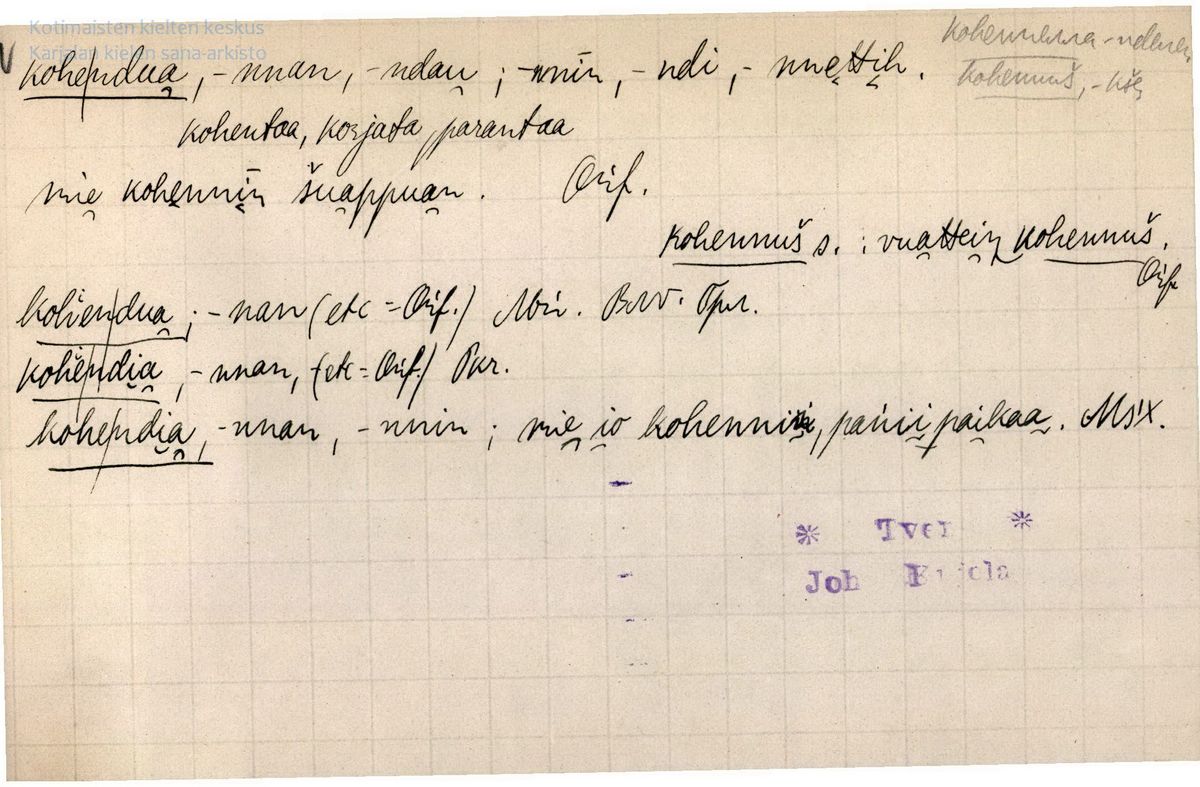 Kotimaisten kielten keskus
Karjalan kielen sana-arkisto
kohendua, -nnan, -ndau; -nnin, -ndi, -nnettih.
kohennella -ndelen
kohennuš, -kše
kohentaa, korjata, parantaa
mie kohennin šuappuan. Orif.
kohennuš s. : vuattein kohennuš.
Orif.
kohendua; -nan (etc = Orif.)
kohendia, -nnan, (etc = Orif.) Pkr.
kohendia, -nnan, -nnin; mie io kohennin, panii paikaa.
* Tver *
Joh Kujola